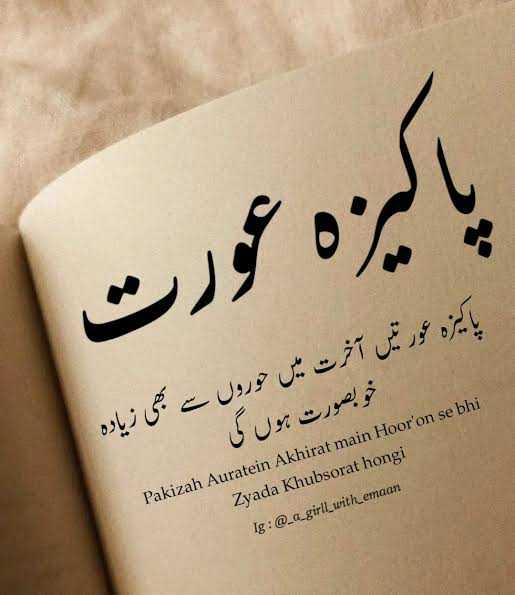 پاکیزہ عورت
پاکیزہ عورتیں آخرت میں حوروں سے بھی زیادہ
خوبصورت ہوں گی
Pakizah Auratein Akhirat main Hoor'on se bhi
Zyada Khubsorat hongi
Ig : @_a_girll_with_emaan